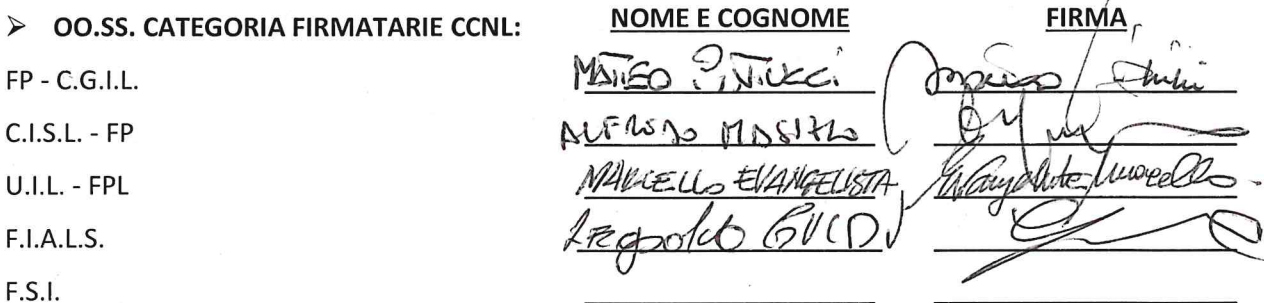 ➢ OO.SS. CATEGORIA FIRMATARIE CCNL: NOME E COGNOME FIRMA
FP - C.G.I.L. MATTEO
C.I.S.L. - FP ALFREDO
U.I.L. - FPL MARCELLO EVANGELISTA Evangelista Marcello
F.I.A.L.S. Leopoldo
F.S.I.